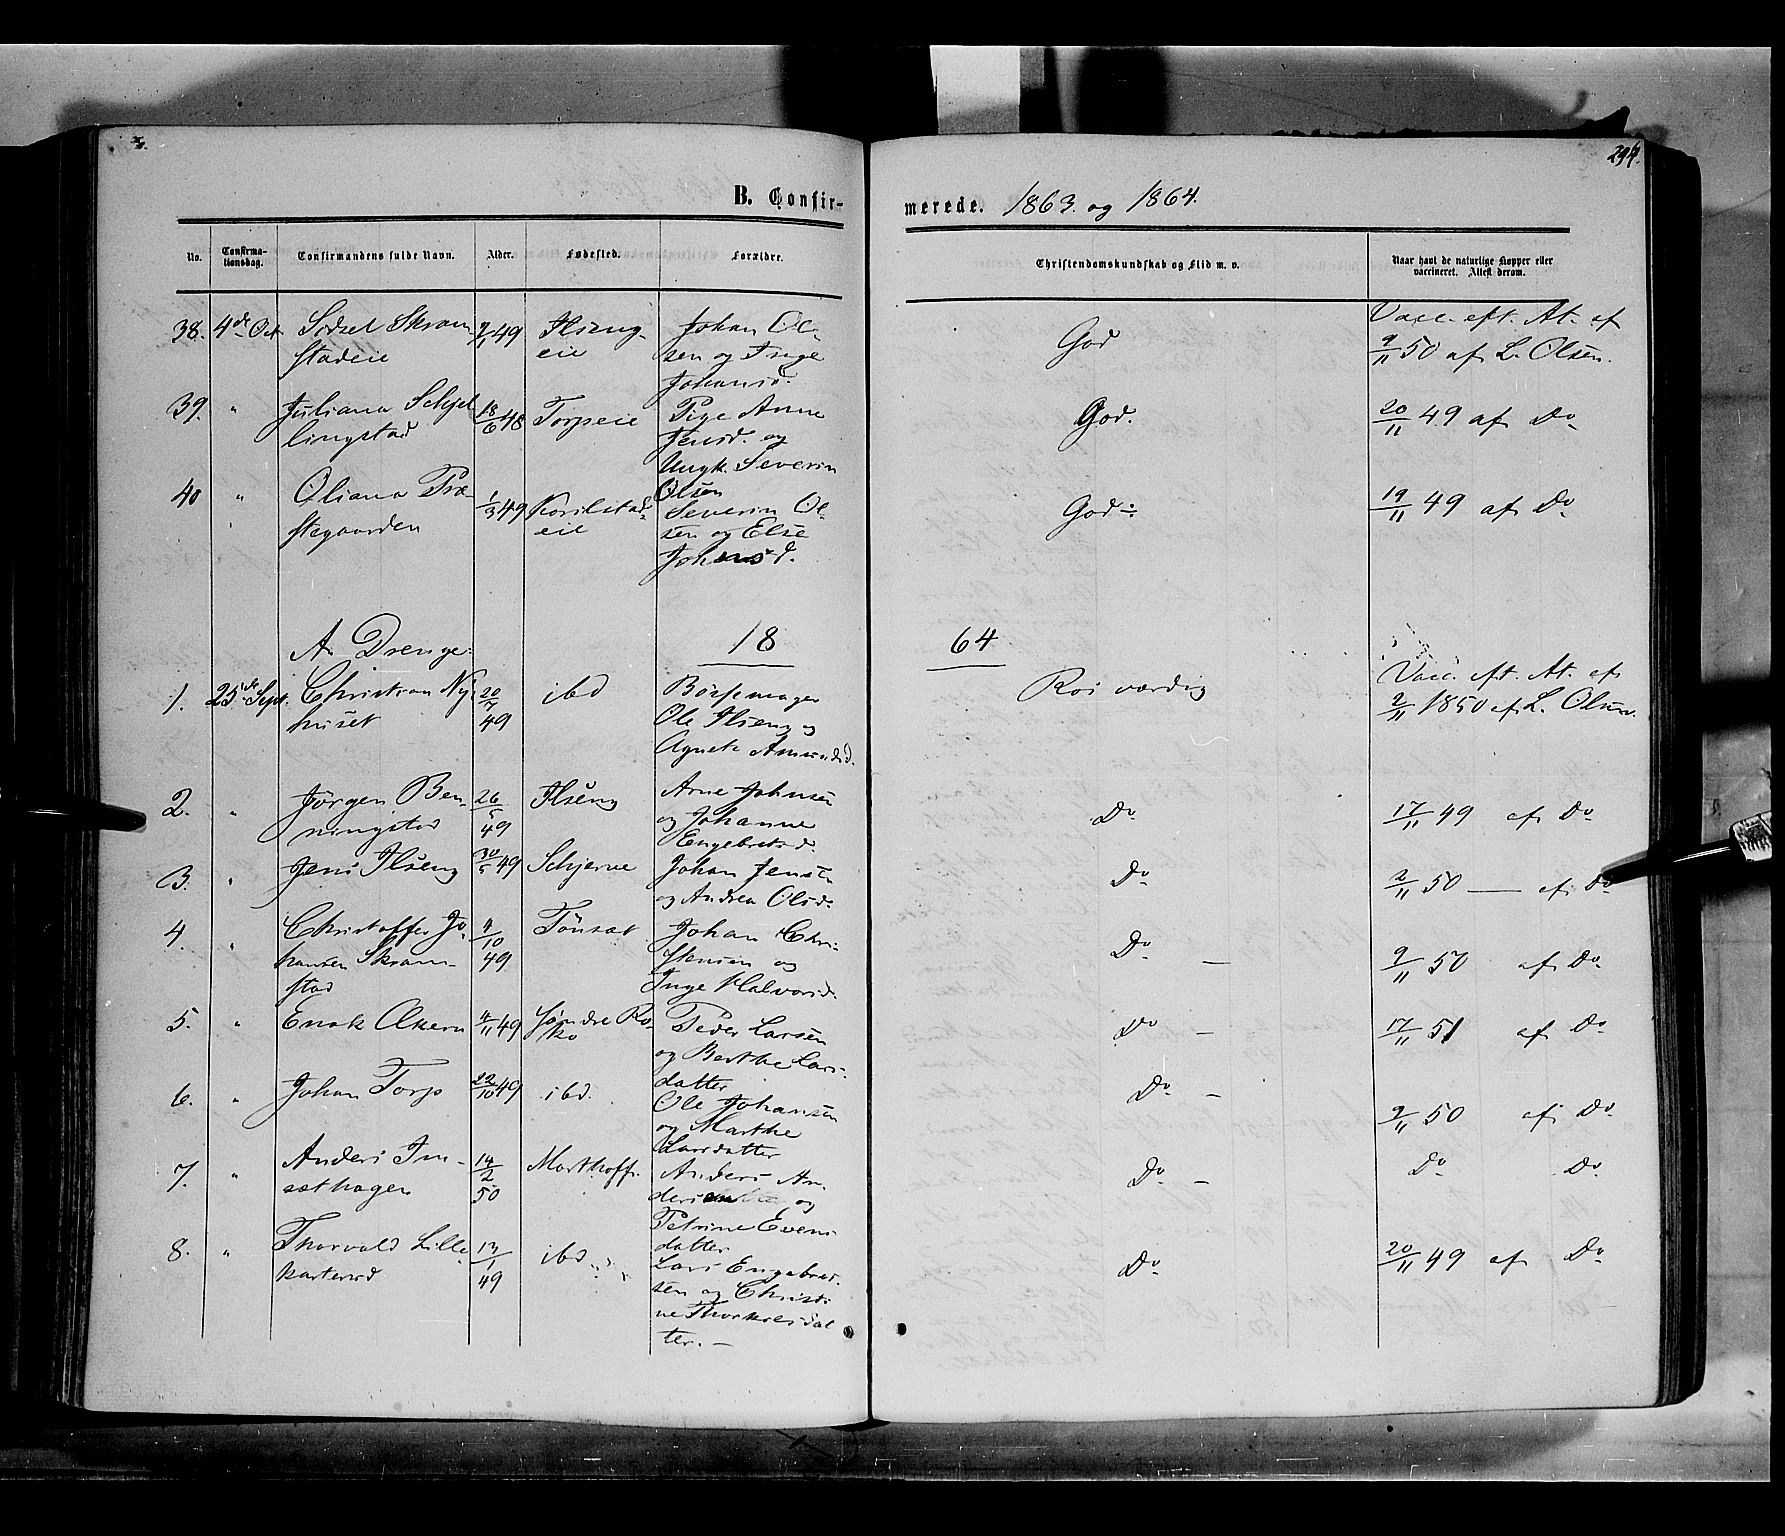 294.
B. Confir-
merede. 1863. og 1864.
No. Confirma-tionsdag. Confirmandens fulde Navn. Alder. Fødested. Forældre. Christendomskundskab og Flid m. v. Naar havt de naturlige Kopper eller vaccineret. Attest derom.
38. 4de Oct Sidsel Skram-
stadeie
9/1 49 Ilseng-
eie
Johan Ol-
sen og Inge
Johansd.
God
Vacc. eft. At. af
9/11 50 af L. Olsen.
39. " Juliana Schjel
lingstad
18/6 48 Torpeie
Pige Anne
Jensd. og
Ungk. Severin
Olsen
God.
20/11 49 af Do
40 " Oliana Præ-
stegaarden
1/3 49
eie
Severin Ol-
sen og Else
Johansd.
God÷
19/11 49 af Do
A. Drenge.
18 64
1. 25de Sept. Christian Ny-
huset
20/7
49
ibd
Ole Ilseng og
Agnete Amundsd.
værdig
Vacc. eft. At. af
2/11 1850 af L. Olsen.
2. " Jørgen Ben-
ningstad
26/5
49
Ilseng
Arne Johnsen
og Johanne
Engebretsd.
Do
17/11 49 af Do
3. " Jens Ilseng
30/5 49 Schjerve
Johan Jensen
og Andrea Olsd.
Do
2/11 50 — af Do
4. " Christoffer Jo-
hansen Skram-
stad
4/10
49
Tønset
Johan Chri-
stensen og
Inge Halvorsd.
Do —
9/11 50 af Do
5. " Enok Akern
4/11 49 Søndre Ro-
ko
Peder Larsen
og Berthe Lars-
datter
Do —
17/11 51 af Do
6. " Johan Torp
22/10 49 ibd.
Ole Johansen
og Marthe
Larsdatter
Do —
9/11 50 af Do
7. " Anders Im-
sethagen
14/2
50
Morthoff.
Anders An-
dersen og
Petrine Evens
datter
Do —
Do Do
8. " Thorvald Lille
13/1
49
ibd
Lars Engebret-
sen og Christi
ne Thorkelsdat
ter. —
Do
20/11 49 af Do